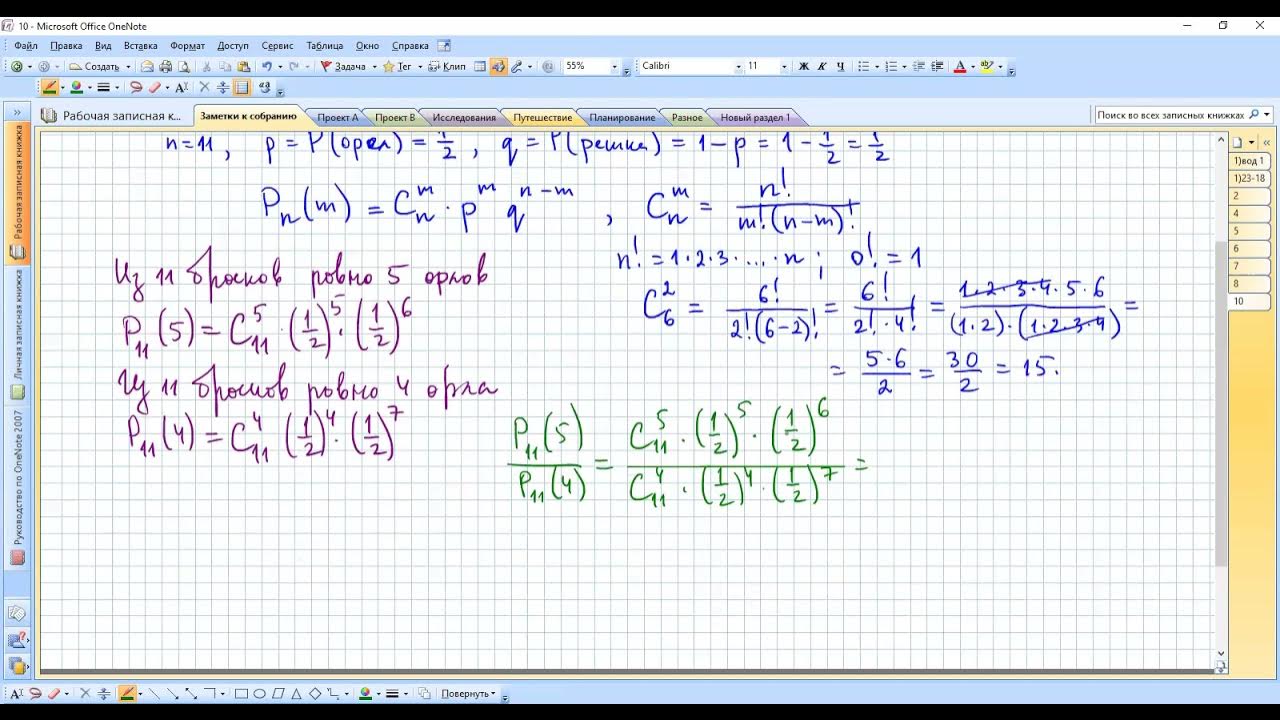 10 - Microsoft Office OneNote
Файл Правка Вид Вставка Формат Доступ Сервис Таблица Окно Справка
Создать Задача Тег Клип 55% Calibri 11 Ж К Ч
Рабочая записная к... Заметки к собранию Проект A Проект B Исследования Путешествие Планирование Разное Новый раздел 1 Поиск во всех записных книжках
Рабочая записная книжка
Личная записная книжка
Руководство по OneNote 2007
n=11, p = P(орел) = 1/2, q = P(решка) = 1-p = 1 - 1/2 = 1/2
P_n(m) = C_n^m · p^m q^{n-m}, C_n^m = n!/(m!(n-m)!)
n! = 1·2·3·...·n ; 0! = 1
Из 11 бросков ровно 5 орлов
C_6^2 = 6!/(2!(6-2)!) = 6!/(2!·4!) = (1·2·3·4·5·6)/((1·2)·(1·2·3·4)) =
P_11(5) = C_11^5 · (1/2)^5 · (1/2)^6
= (5·6)/2 = 30/2 = 15.
Из 11 бросков ровно 4 орла
P_11(4) = C_11^4 (1/2)^4 · (1/2)^7
P_11(5)/P_11(4) = (C_11^5 · (1/2)^5 · (1/2)^6)/(C_11^4 · (1/2)^4 · (1/2)^7) =
1)вод 1
1)23-18
2
4
5
6
7
8
10
Повернуть